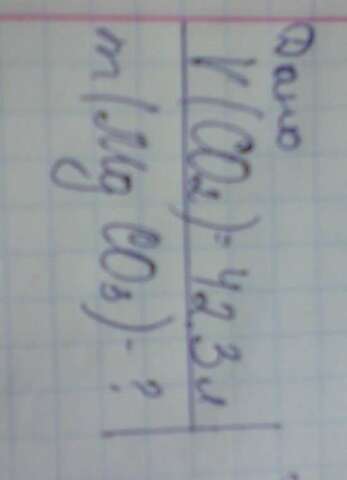 Дано
V(CO₂)=42.3л
m(MgCO₃)-?